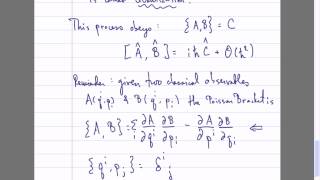 This process obeys : {A,B} = C
[Â, B̂] = iħ Ĉ + O(ħ²)
Reminder : given two classical observables
A(q,p) & B(q,p) the Poisson Bracket is
{A,B} = Σ ∂A/∂qⁱ ∂B/∂pᵢ - ∂A/∂pᵢ ∂B/∂qⁱ ⇐
{qⁱ, pⱼ} = δⁱⱼ